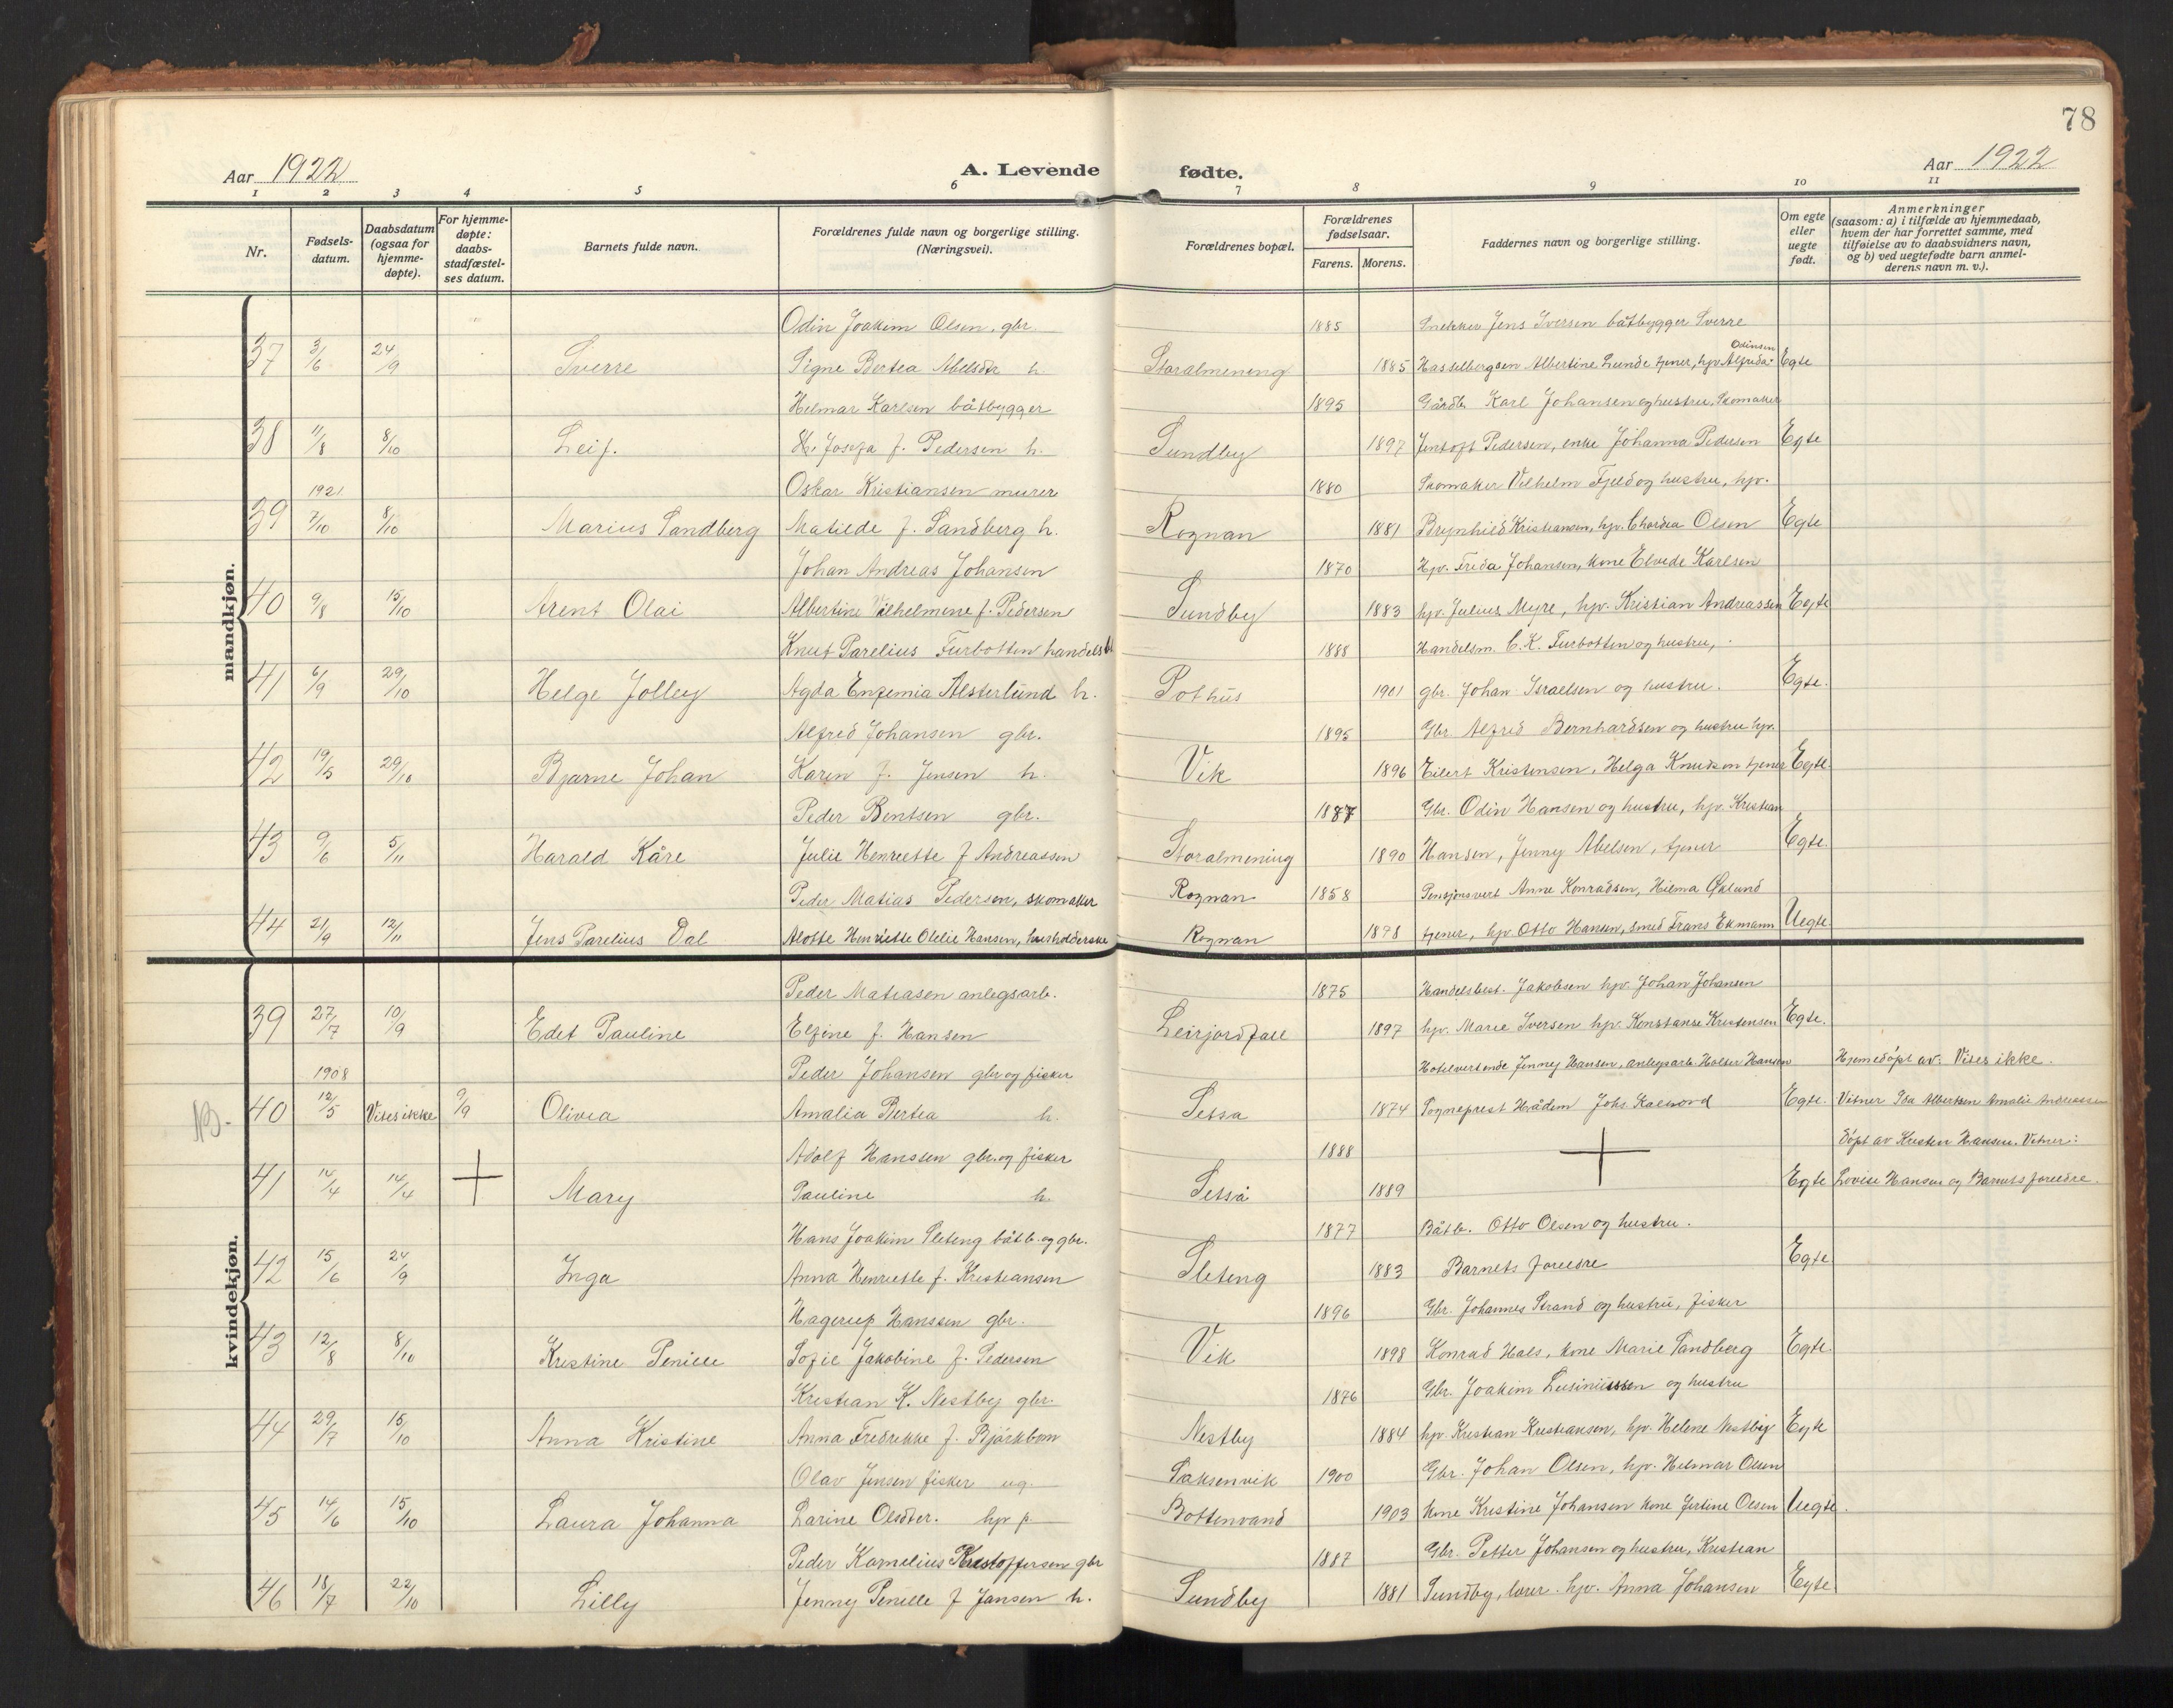 78
Aar 1922
A. Levende fødte.
Aar 1922
1 2 3 4 5 6 7 8 9 10 11
Nr.
Fødsels-
datum.
Daabsdatum
(ogsaa for
hjemme-
døpte).
For hjemme-
døpte:
daabs-
stadfæstel-
ses datum.
Barnets fulde navn.
Forældrenes fulde navn og borgerlige stilling.
(Næringsvei).
Forældrenes bopæl.
Forældrenes
fødselsaar.
Farens. Morens.
Faddernes navn og borgerlige stilling.
Om egte
eller
uegte
født.
Anmerkninger
(saasom: a) i tilfælde av hjemmedaab,
hvem der har forrettet samme, med
tilføielse av to daabsvidners navn,
og b) ved uegtefødte barn anmel-
derens navn m. v.).
mandkjøn.
Odin Joakim Olsen, gbr. 1885 Snekker Jens Iversen båtbygger Sverre
Odinsen
37 3/6 24/9 Sverre Signe Bertea Abelsdtr h. Storalmening 1885 Hasselbergsen Albertine Lunde tjener, hjv. Alfrida Egte
Hilmar Karlsen båtbygger 1895 Gårdb. Karl Johansen og hustru, Skomaker
38 11/8 8/10 Leif. Josefa f. Pedersen h. Sundby 1897 Jentoft Pedersen, enke Johanna Pedersen Egte
1921 Oskar Kristiansen murer 1880 Skomaker Vilhelm Fjeld og hustru, hjv.
39 7/10 8/10 Marius Sandberg Matilde f. Sandberg h. Rognan 1881 Brynhild Kristiansen, hjv. Olsen Egte
Johan Andreas Johansen 1870 Hjv. Frida Johansen, kone Elvede Karlsen
40 9/8 15/10 Arent Olai Albertine Vilhelmine f. Pedersen Sundby 1883 hjv. Julius Myre, hjv. Kristian Andreassen Egte
Knut Parelius Furbotten handelsb. 1888 Handelsm. C. K. Furbotten og hustru,
41 6/9 29/10 Helge Jolley Agda Enzemia Alsterlund h. Pothus 1901 gbr. Johan Israelsen og hustru. Egte.
Alfred Johansen gbr. 1895 Gbr. Alfred Bernhardsen og hustru hjv.
42 19/5 29/10 Bjarne Johan Karen f. Jensen h. Vik 1896 Eilert Kristensen, Helga Knudsen tjener Egte.
Peder Bentsen gbr. 1887 Gbr. Odin Hansen og hustru, hjv. Kristian
43 9/6 5/11 Harald Kåre Julie Henriette f Andreassen Storalmening 1890 Hansen, Jenny Abelsen, tjener Egte.
Peder Matias Pedersen, skomaker Rognan 1858 Pensjonsvert Anne Konradsen, Hilma Øklund
44 21/9 12/11 Jens Parelius Dal Alotte Henriette Olelie Hansen, husholderske Rognan 1898 tjener, hjv. Otto Hansen, smed Frans Ekmann Uegte
kvindekjøn.
Peder Matiasen anlegsarb. 1875 Handelsbest. Jakobsen hjv. Johan Johansen
39 27/7 10/9 Edet Pauline Elfine f. Hansen Leirjordfall 1897 hjv. Marie Iversen hjv. Konstanse Kristensen Egte.
1908 Peder Johansen gbr. og fisker Hotelvertinde Jenney Hansen, anlegsarb. Holter Hansen Hjemedøpt av: Vites ikke.
NB. 40 12/5 Vites ikke 9/9 Olivia Amalia Bertea h. Setsa 1874 Sogneprest Hrådem Johs. Kalvord Egte. Vitner Ida Albertsen Amalie Andreassen
Adolf Hanssen gbr. og fisker 1888 døpt av Kristen Hansen. Vitner:
41 14/4 14/4 + Mary Pauline h. Setså 1889 + Egte Lovise Hansen og Barnets foreldre.
Hans Joakim Sleteng båtb. og gbr. 1877 Båtb. Otto Olsen og hustru.
42 15/6 24/9 Inga Anna Henriette f. Kristiansen Sleteng 1883 Barnets foreldre Egte
Hagerup Hanssen gbr. 1896 Gbr. Johannes Strand og hustru, fisker
43 12/8 8/10 Kristine Penille Sofie Jakobine f. Pedersen Vik 1898 Konrad Hals, kone Marie Sandberg Egte.
Kristian K. Nestby gbr. 1876 Gbr. Joakim Lusinussen og hustru
44 29/7 15/10 Anna Kristine Anna Fredrikke f. Bjørkbom Nestby 1884 hjv. Kristian Kristiansen, hjv. Helene Nestby Egte
Olav Jensen fisker ug. Saksenvik 1900 Gbr. Johan Olsen, hjv. Helmar Olsen
45 14/6 15/10 Laura Johanna Larine Olsdtr. hjv p Bottenvand 1903 kone Kristine Johansen kone Jertine Olsen Uegte.
Peder Kornelius Kristoffersen gbr 1887 Gbr. Petter Johansen og hustru, Kristian
46 18/7 22/10 Lilly Jenny Penille f Jansen h. Sundby 1881 Sundby, lærer. hjv. Anna Johansen Egte